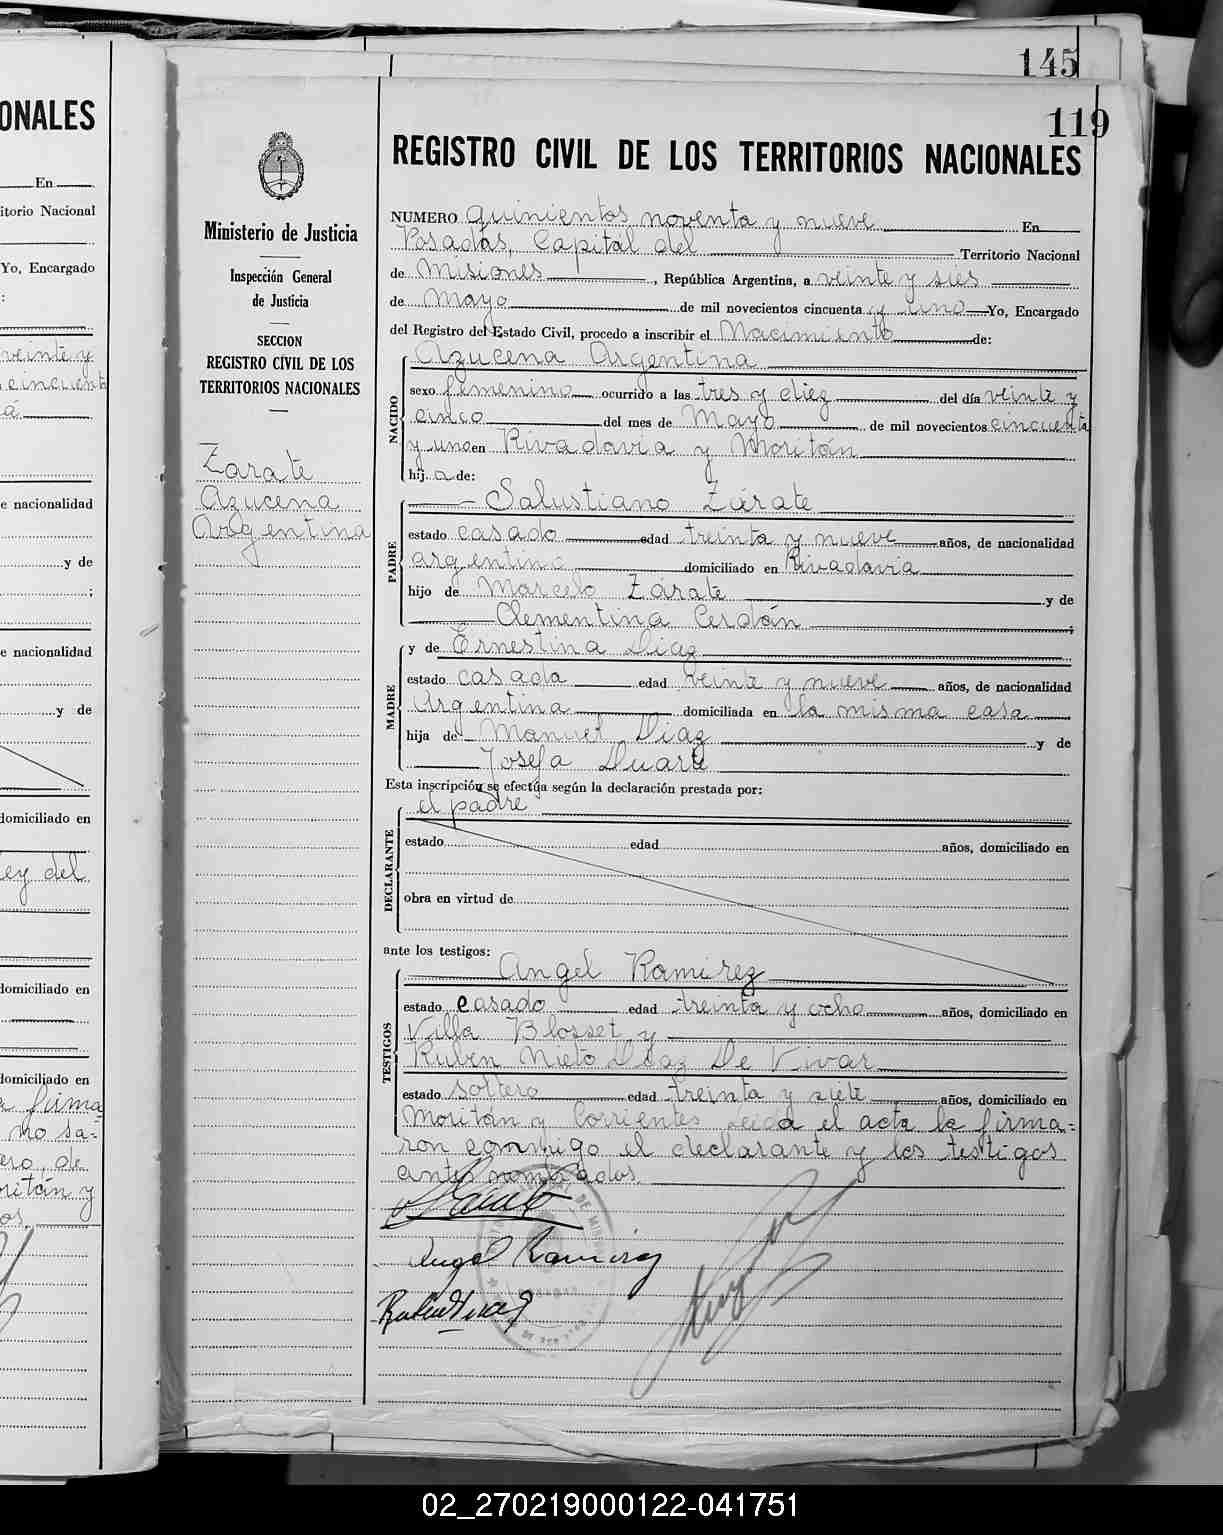 145
119
ONALES
En
itorio Nacional
Yo, Encargado
:
veinte y
cincuenta
e nacionalidad
y de
;
e nacionalidad
y de
domiciliado en
ey del
domiciliado en
domiciliado en
firma
no sa=
ero, de
ritán y
os.
Ministerio de Justicia
Inspección General
de Justicia
SECCION
REGISTRO CIVIL DE LOS
TERRITORIOS NACIONALES
Zarate
Azucena
Argentina
REGISTRO CIVIL DE LOS TERRITORIOS NACIONALES
NUMERO quinientos noventa y nueve En
Posadas, Capital del Territorio Nacional
de Misiones, República Argentina, a veinte y sies
de Mayo de mil novecientos cincuenta y uno Yo, Encargado
del Registro del Estado Civil, procedo a inscribir el Nacimiento de:
NACIDO
Azucena Argentina
sexo femenino ocurrido a las tres y diez del día veinte y
cinco del mes de Mayo de mil novecientos cincuenta
y uno en Rivadavia y Moritán
hij a de:
PADRE
Salustiano Zárate
estado casado edad treinta y nueve años, de nacionalidad
argentino domiciliado en Rivadavia
hijo de Marcelo Zárate y de
Clementina Cerdán ;
MADRE
y de Ernestina Diaz
estado casada edad veinte y nueve años, de nacionalidad
Argentina domiciliada en la misma casa
hija de Manuel Diaz y de
Josefa Duarte
Esta inscripción se efectúa según la declaración prestada por:
DECLARANTE
el padre
estado edad años, domiciliado en
obra en virtud de
ante los testigos:
TESTIGOS
Angel Ramirez
estado casado edad treinta y ocho años, domiciliado en
Villa Blosset y
Ruben Nieto Diaz De Vivar
estado soltero edad treinta y siete años, domiciliado en
Moritán y Corrientes Leida el acta la firma=
ron conmigo el declarante y los testigos
antes nombrados.
Angel Ramirez
02_270219000122-041751